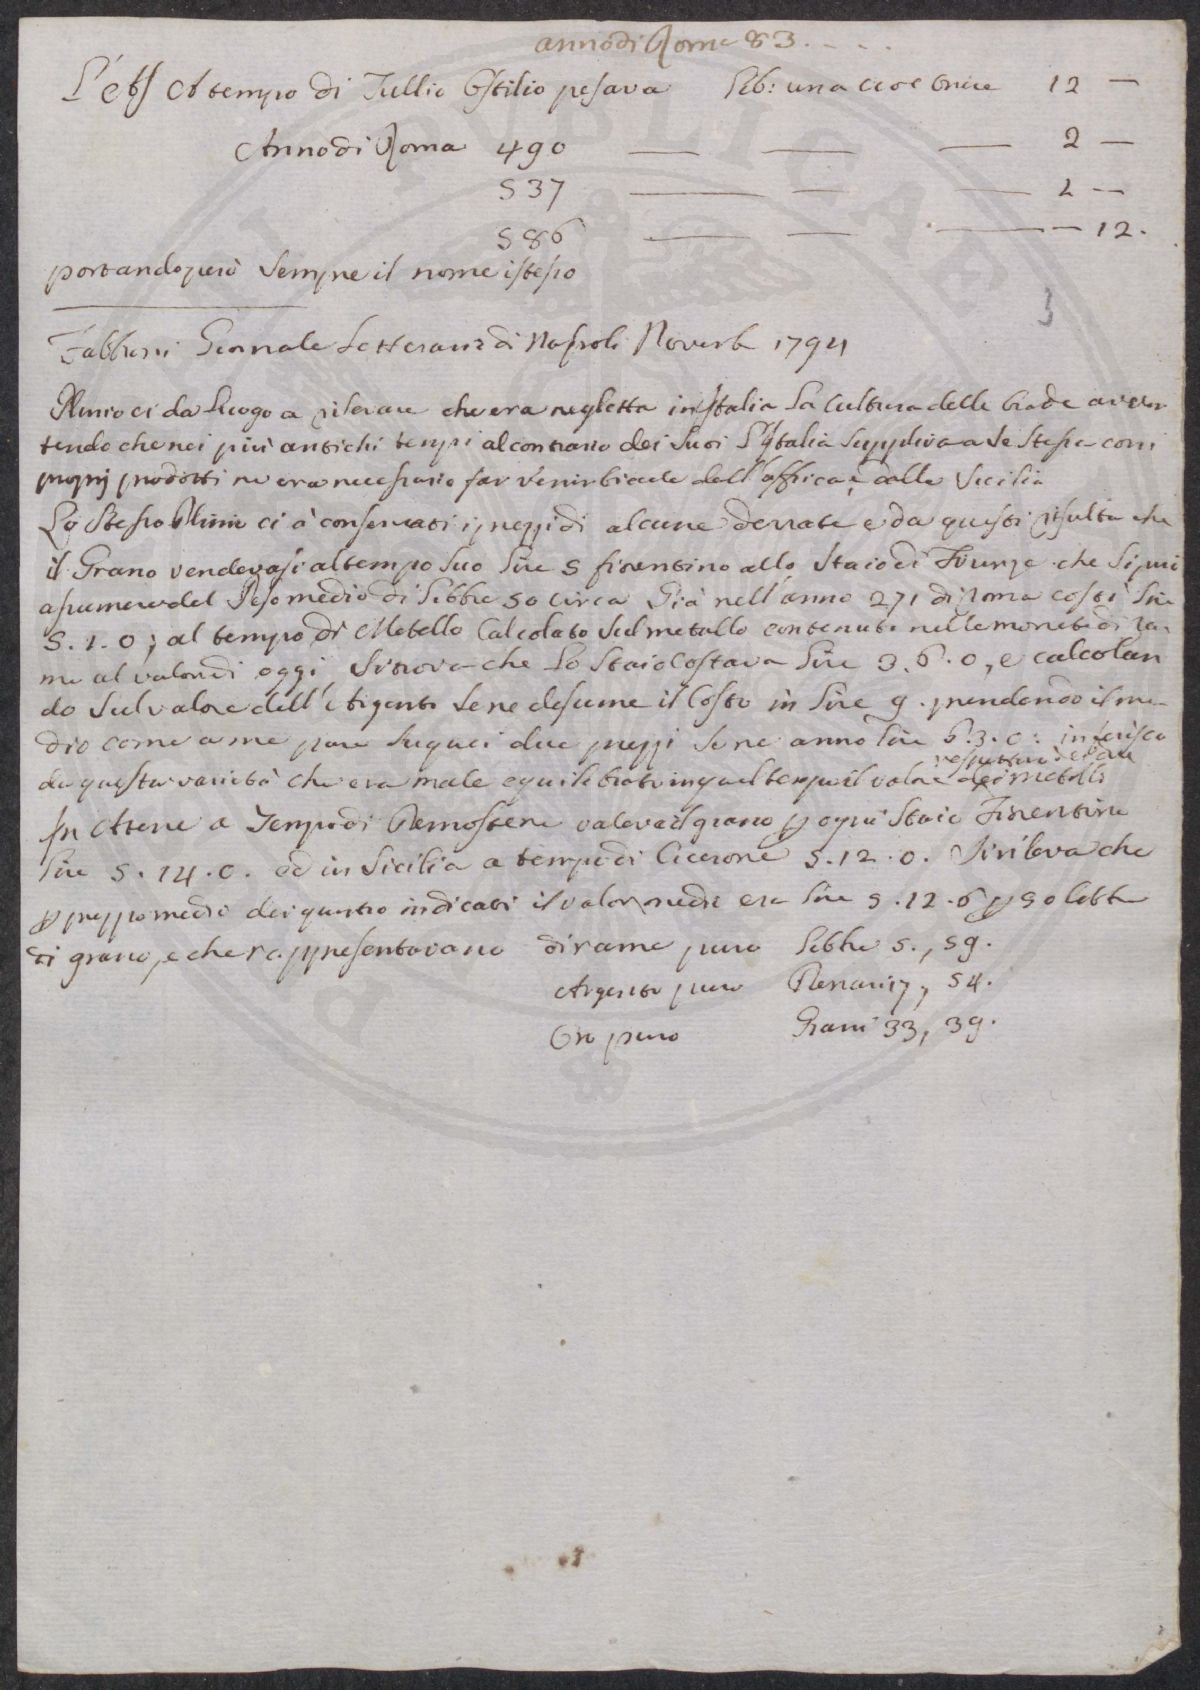 anno di Roma 83. . . .
L'Ass A tempo di Tullio Ostilio pesava Lib: una cioe Oncie 12 —
Anno di Roma 490 — — — 2 —
537 — — — 1 —
586 — — — — 12.
portando però sempre il nome istesso
3
Fabbroni Giornale Letterario di Napoli Novemb 1794
Plinio ci da luogo a rilevare che era negletta in Italia la cultura delle biade avver
tendo che nei più antichi tempi al contrario dei suoi l'Italia suppliva a se stessa con i
proprj prodotti ne era necessario far venir biade dall'Affrica, e dalla Sicilia
Lo stesso Plinio ci à conservati i prezzi di alcune derrate e da questi risulta che
il Grano vendevasi al tempo suo Lire 5 fiorentino allo Staio di Firenze che si può
assumere del Peso medio di Libbre 50 circa Già nell'anno 271 di Roma costò Lire
5.1.0; al tempo di Metello Calcolato sul metallo contenuto nelle monete di ra-
me al valor di oggi, si trova che Lo Staio Costava Lire 3.6.0, e calcolan
do sul valore dell'Argento se ne desume il Costo in Lire 9. prendendo il me-
dio come a me pare su quei due prezzi se ne anno Lire 6.3.0: inferisco
da questa varietà che era male equilibrato in quel tempo il valore respettivo dei due metalli
In Atene a Tempo di Demostene valeva il grano p ogni Staio Fiorentino
Lire 5.14.0. ed in Sicilia a tempo di Cicerone 5.12.0. Si rileva che
p prezzo medio dei quattro indicati il valor medio era Lire 5.12.6 p 50 Libbre
di grano, e che rappresentavano di rame puro Libbre 5., 59.
Argento puro Denari 17, 54.
Oro puro Grani 33, 39.